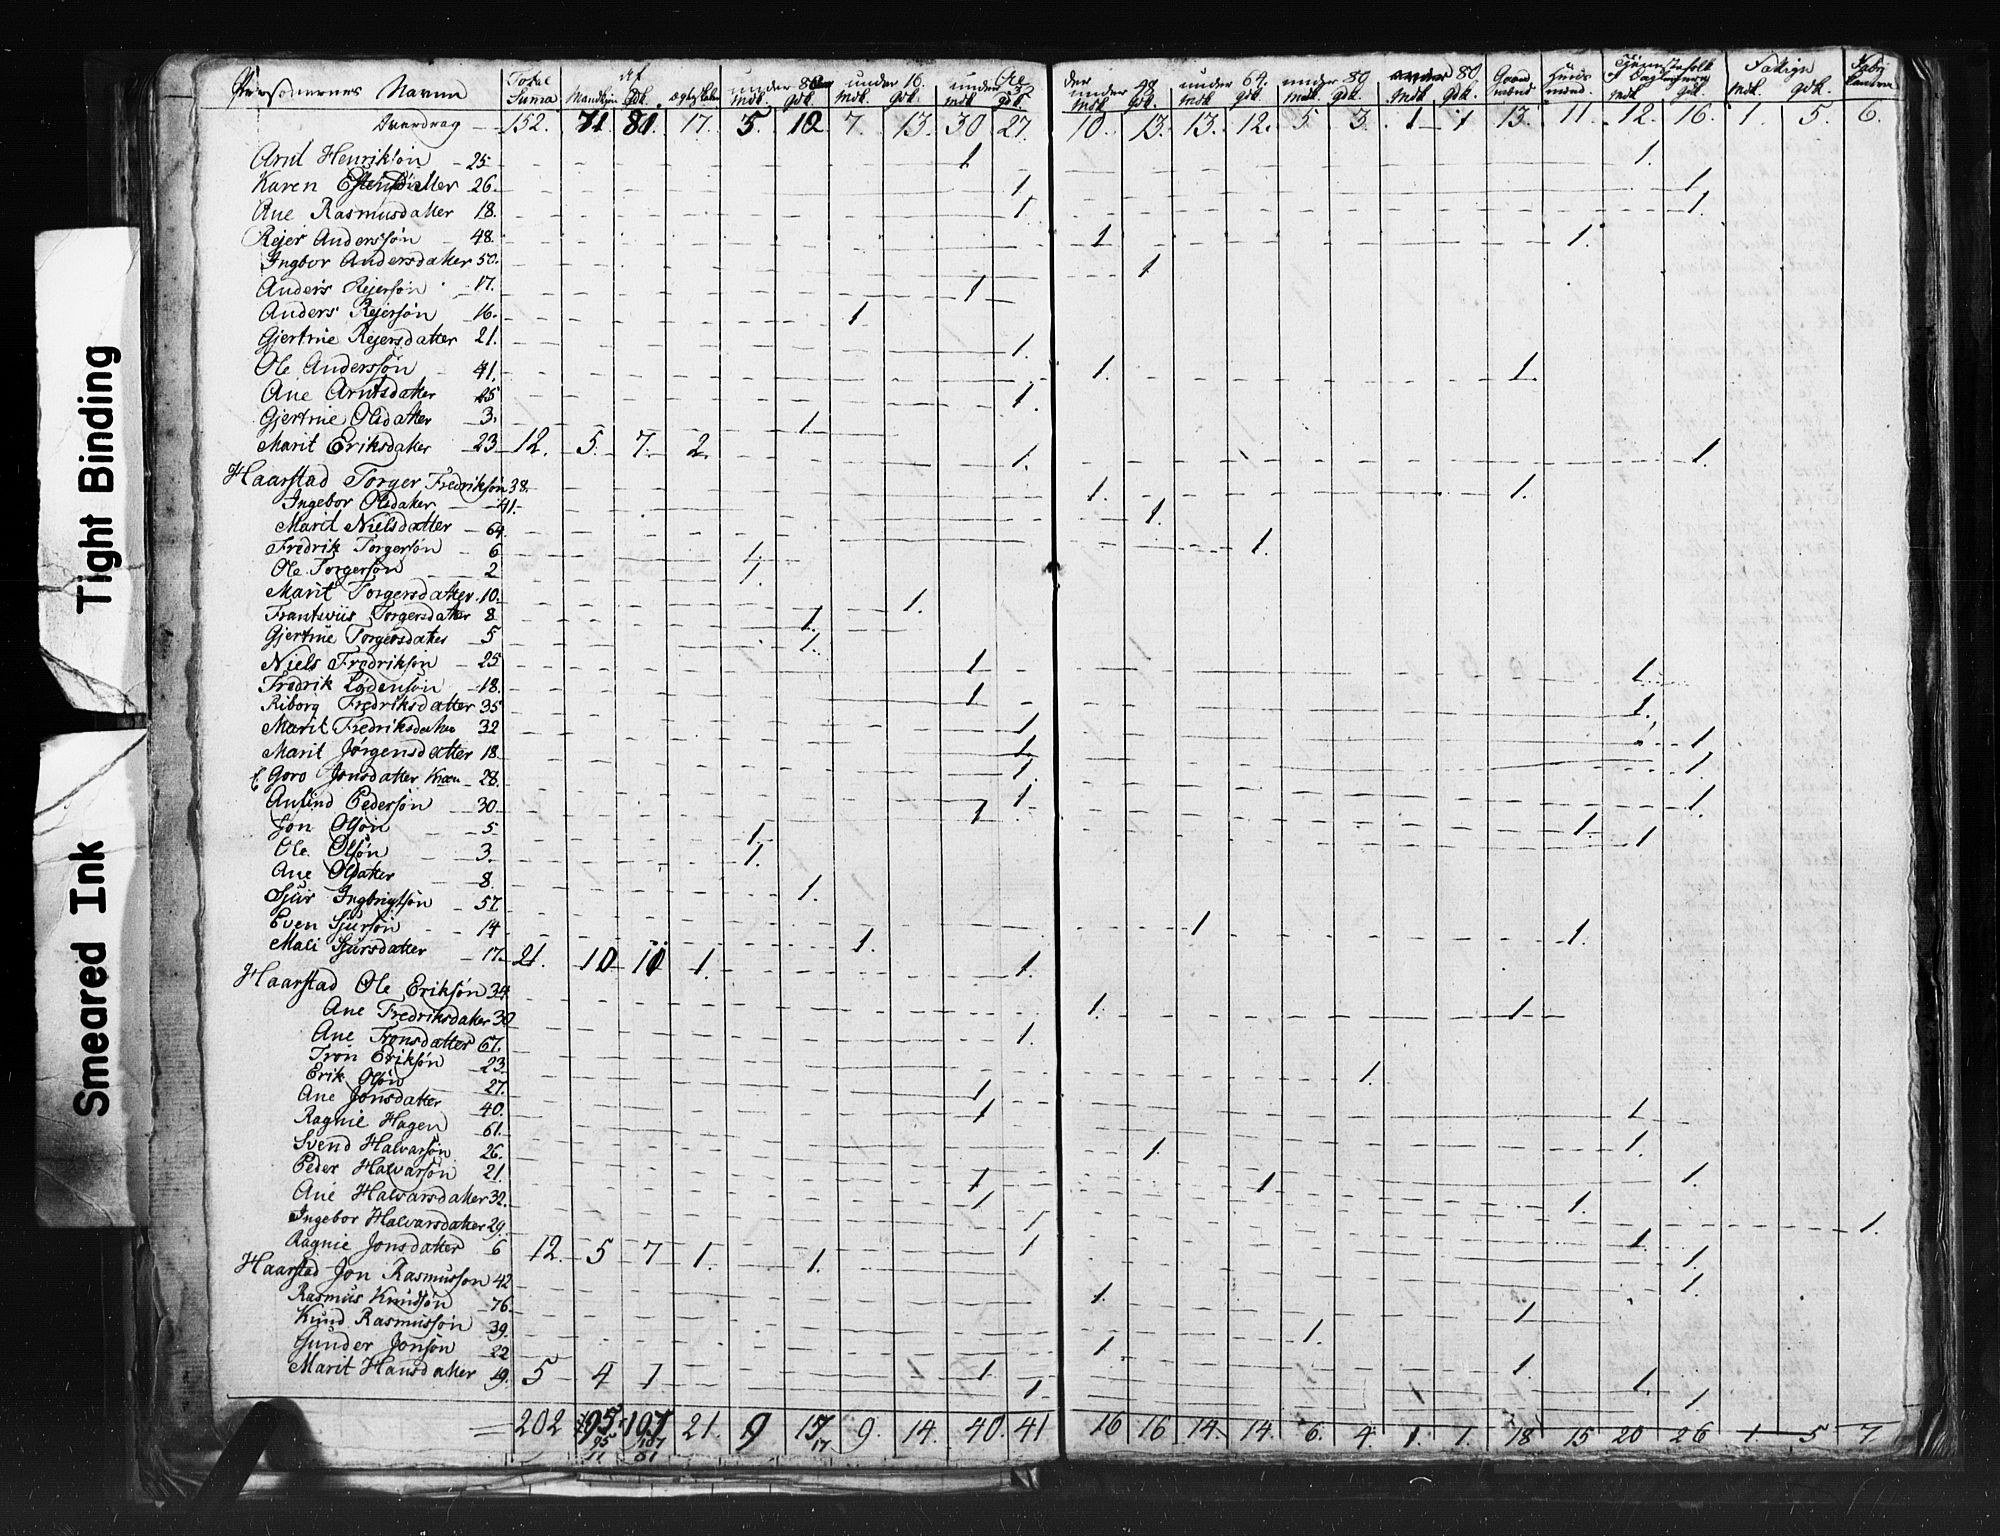 Tight Binding
Smeared Ink
Personernes Navne Total Suma Mandkjøn Qdk. under 8 Mdk. Qdk. under 16 Mdk. Qdk. under 32 Mdk. Qdk. under 48 Mdk. Qdk. under 64 Mdk. Qdk. under 80 Mdk. Qdk. over 80 Mdk. Qdk. Gaard mænd Huus mænd Tienestefolk Mdk. Qdk. Fattige Mdk. Qdk.
Overdrag 152. 71 81. 17. 5. 12 7. 13. 30 27. 10. 13. 13. 12. 5. 3. 1 1 13. 11. 12. 16. 1. 5. 6.
Arnt Henriksøn 25 1 1.
Karen Estensdatter 26 1 1
Ane Rasmusdatter 18. 1. 1.
Rejer Anderssøn 48. 1 1.
Ingbor Andersdatter 50. 1
Anders Rejersøn 17. 1
Anders Rejersøn 16. 1
Gjertrue Rejersdatter 21. 1.
Ole Anderssøn 41. 1. 1.
Ane Arntsdatter 25 1.
Gjertrue Olsdatter 3. 1.
Marit Eriksdatter 23 12. 5. 7. 2. 1. 1.
Haarstad Torger Fredriksøn 38. 1. 1.
Ingebor Olsdatter 41. 1.
Marit Nielsdatter 64. 1.
Fredrik Torgersøn 6 1.
Ole Torgersøn 2 1.
Marit Torgersdatter 10. 1.
Frantzviis Torgersdatter 8 1.
Gjertrue Torgersdatter 5 1.
Niels Fredriksøn 25 1 1.
Fredrik Lodensøn 18. 1 1.
Riborg Fredriksdatter 35 1 1.
Marit Fredriksdatter 32 1 1.
Marit Jørgensdatter 18. 1. 1.
Goro Jonsdatter 28. 1
Amund Pedersøn 30 1 1. 1.
Jon Olsøn 5 1.
Ole Olsøn 3. 1.
Ane Olsdatter 8. 1
Sjur Ingbrigtsøn 57 1 1.
Even Sjursøn 14 1.
Mali Sjursdatter 17. 21. 10 11 1. 1
Haarstad Ole Eriksøn 34 1. 1
Ane Fredriksdatter 30 1
Ane Tronsdatter 67. 1.
Tron Eriksøn 23 1 1
Erik Olsøn 27. 1 1.
Ane Jonsdatter 40. 1 1.
Ragnie Hagen 61. 1
Svend Halvarsøn 26. 1 1.
Peder Halvarsøn 21. 1 1.
Ane Halvarsdatter 32. 1 1.
Ingebor Halvarsdatter 29. 1 1.
Ragnie Jonsdatter 6 12. 5 7 1. 1.
Haarstad Jon Rasmussøn 42 1. 1
Rasmus Knudsøn 76. 1.
Knud Rasmussøn 39. 1 1.
Gunder Jonsøn 22 1. 1.
Marit Hansdatter 19. 5 4 1 1 1.
202 95 107 21. 9 17 9. 14. 40. 41 16 16. 14. 14. 6. 4. 1. 1. 18 15 20 26 1 5 7.
95 107 17